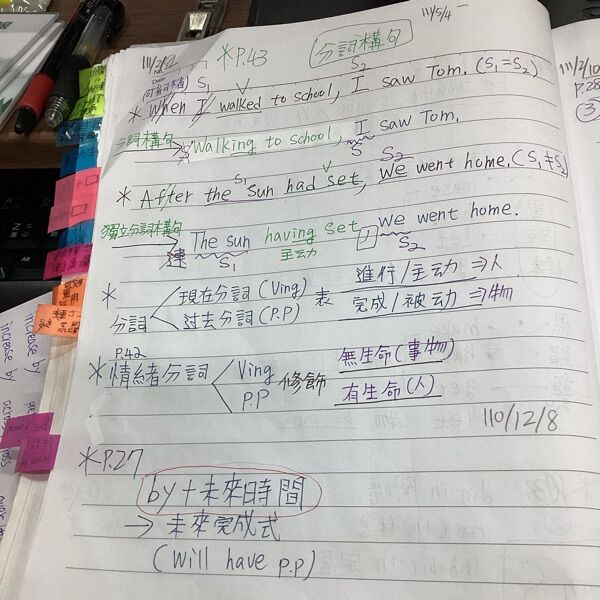 111/5/4
*P.43 分詞構句
S₁ S₂
*When I walked to school, I saw Tom. (S₁=S₂)
分詞構句 Walking to school, I saw Tom.
S
S₁ S₂
*After the sun had set, we went home. (S₁≠S₂)
獨立分詞構句 The sun having set, we went home.
連 S₁ 主动 S₂
* 分詞 現在分詞(Ving) 表 進行/主动⇒人
过去分詞(P.P) 完成/被动⇒物
P.42
*情緒分詞 Ving 修飾 無生命(事物)
P.P 有生命(人)
110/12/8
*P.27
by+未來時間
→ 未來完成式
(will have p.p)
111/2/10
P.28
③